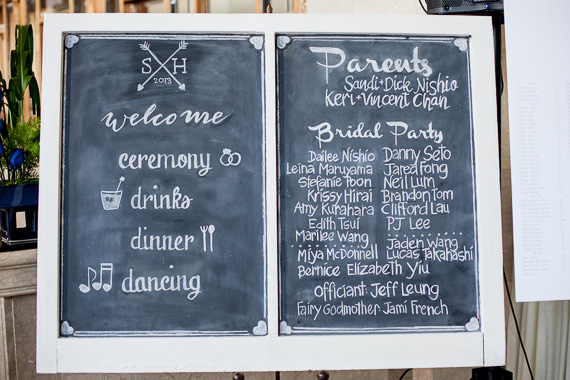 S H
2013
welcome
ceremony
drinks
dinner
dancing
Parents
Sandi + Dick Nishio
Keri + Vincent Chan
Bridal Party
Dailee Nishio Danny Seto
Leina Maruyama Jared Fong
Stefanie Poon Neil Lum
Krissy Hirai Brandon Tom
Amy Kurahara Clifford Lau
Edith Tsui PJ Lee
Marilee Wang Jaden Wang
Miya McDonnell Lucas Takahashi
Bernice Elizabeth Yiu
Officiant: Jeff Leung
Fairy Godmother: Jami French